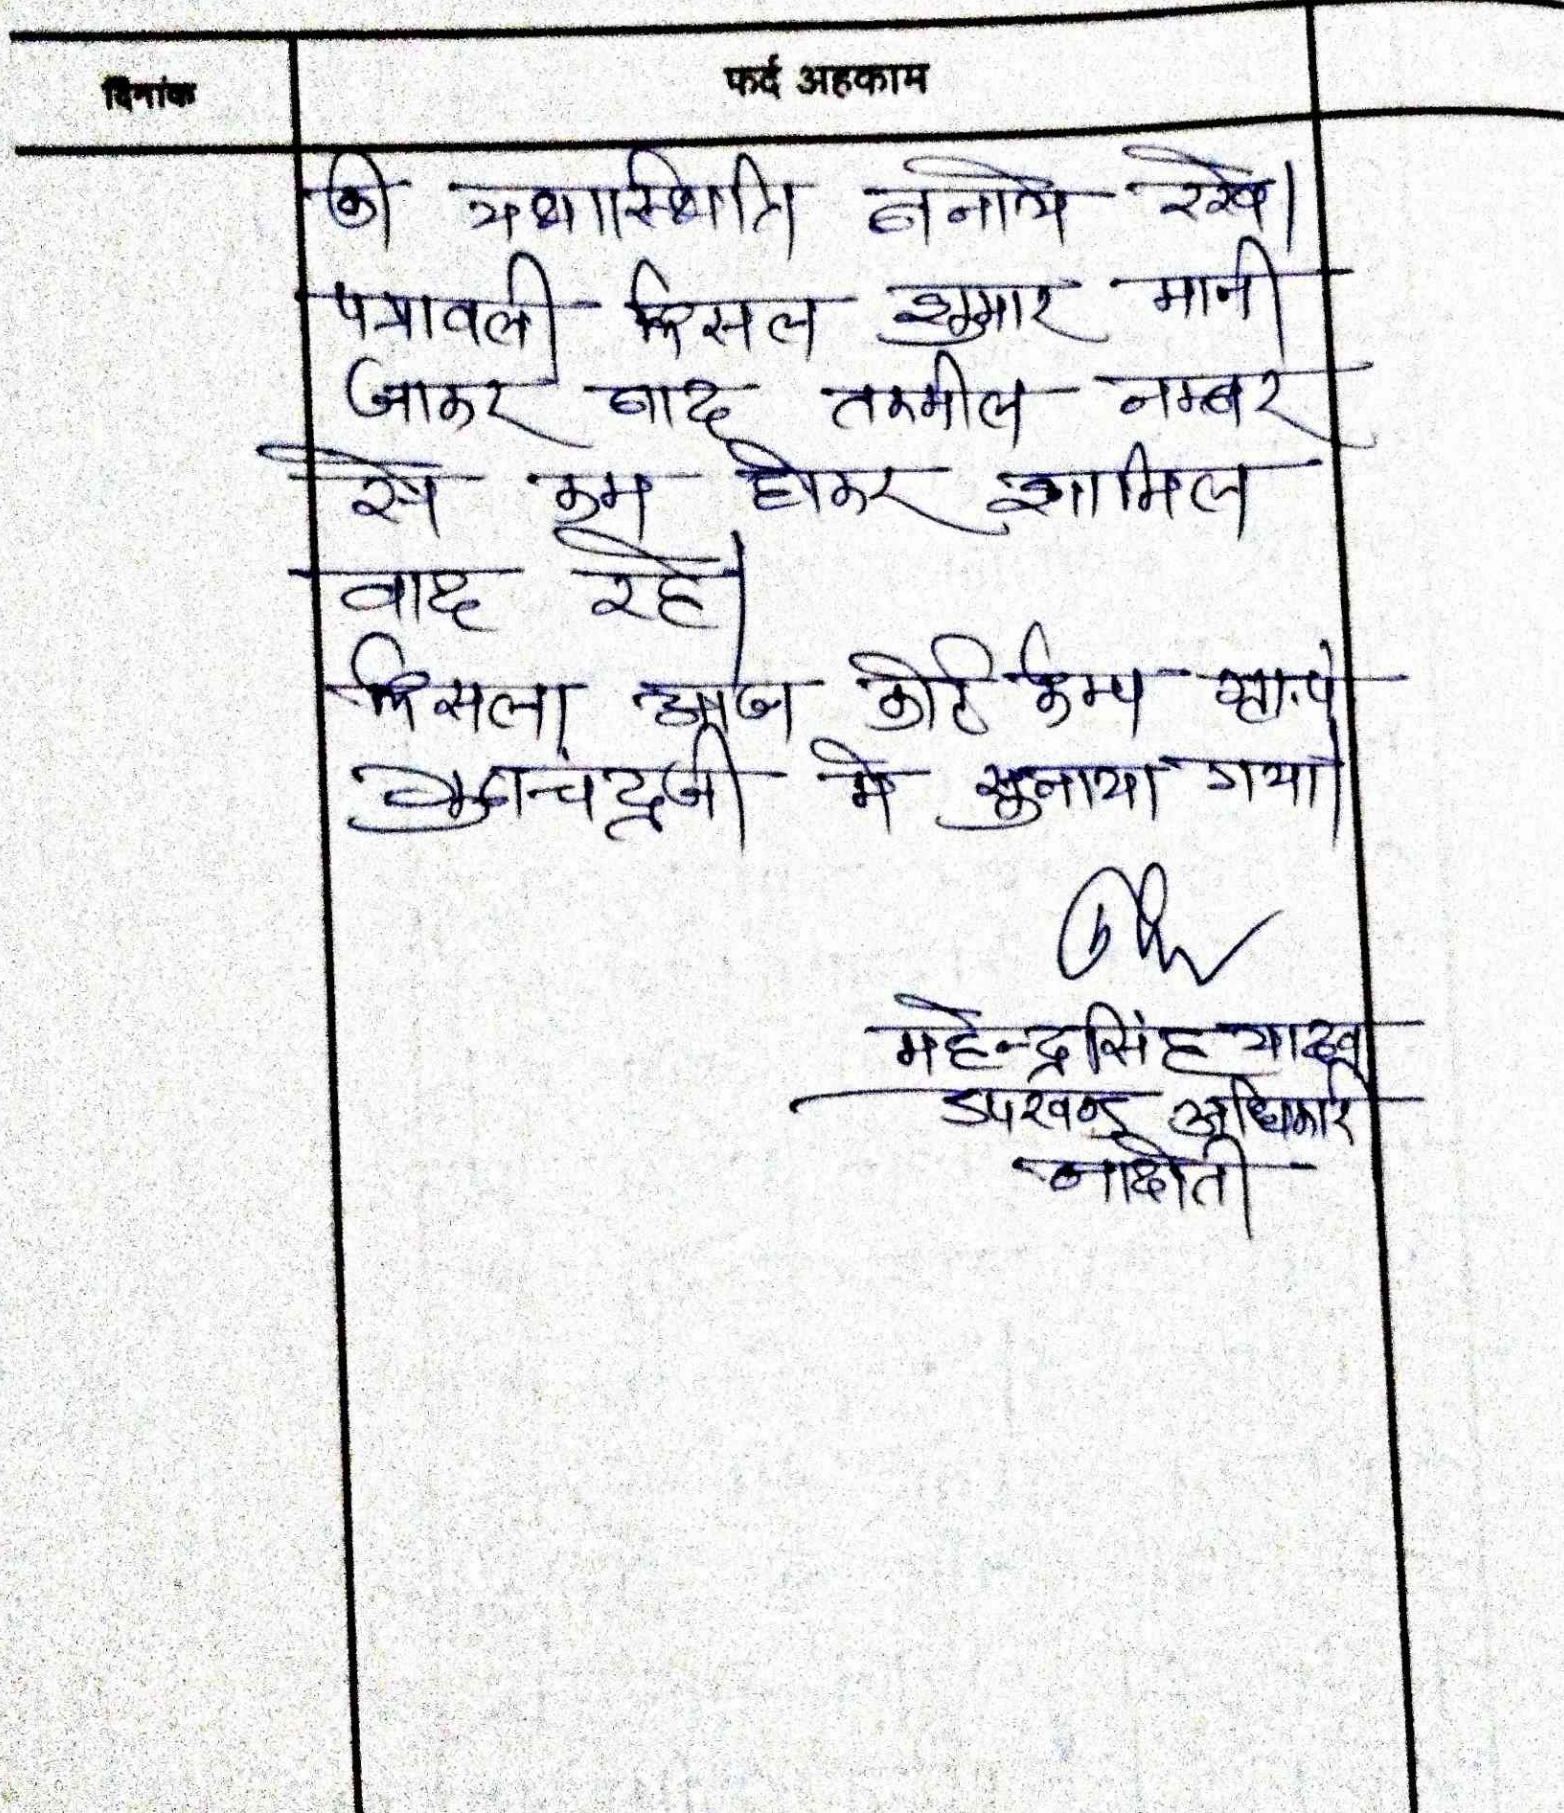 दिनांक
फर्द अहकाम
की यथास्थिति बनाये रखे।
पत्रावली फैसल शुमार मानी
जाकर बाद तकमील नम्बर
से कम होकर शामिल
वाद रहे।
फैसला आज कोर्ट कैम्प ग्रा.पं
गुढाचंद्रजी मे सुनाया गया।
महेन्द्रसिंह यादव
उपखण्ड अधिकारी
नादोती